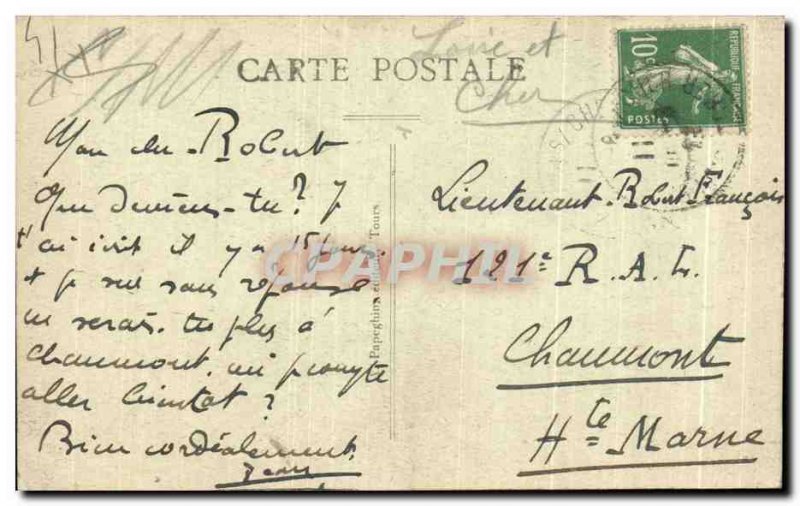 Loire et
Cher
CARTE POSTALE
10c
REPUBLIQUE FRANÇAISE
POSTES
Mon cher Robert
Que deviens-tu? J
t'ai écrit il y a 15 jours
+ je suis sans réponse
ne serais-tu plus à
Chaumont, où je compte
aller bientôt?
Bien cordialement.
Jean
Papeghin, éditeur, Tours
Lieutenant Robert François
121e R. A. L.
Chaumont
Hte Marne
CPAPHIL